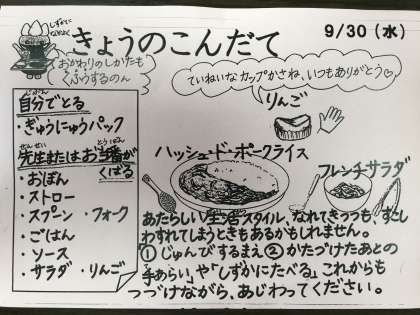 しずかに
なれたよ
きょうのこんだて
9/30(水)
おかわりのしかたも
くふうするのん
ていねいなカップかさね、いつもありがとう♡
りんご
自分でとる
・ぎゅうにゅうパック
先生またはお当番が
くばる
・おぼん
・ストロー
・スプーン ・フォーク
・ごはん
・ソース
・サラダ ・りんご
ハッシュ・ド・ポークライス
フレンチサラダ
あたらしい生活スタイル、なれてきつつも、すこし
わすれてしまうときもあるかもしれません。
①じゅんびするまえ②かたづけたあとの
手あらい」や「しずかにたべる」これからも
つづけながら、あじわってください。